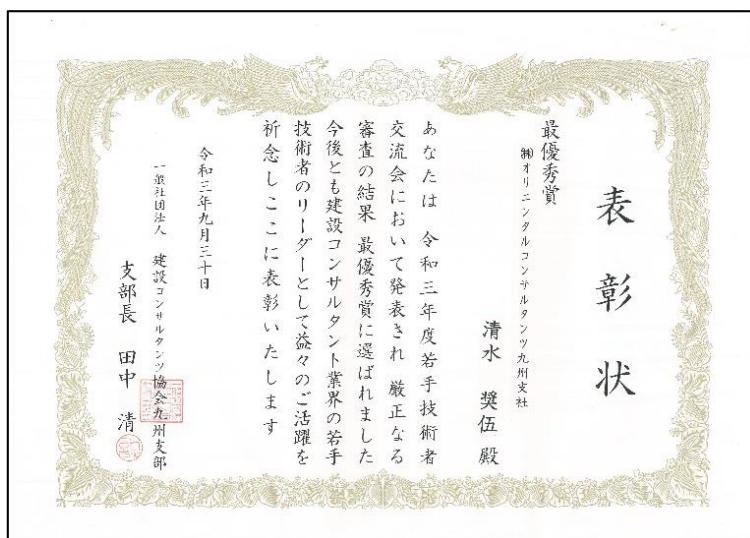 表彰状
最優秀賞
㈱オリエンタルコンサルタンツ九州支社
清水 奨伍 殿
あなたは 令和三年度若手技術者
交流会において発表され 厳正なる
審査の結果 最優秀賞に選ばれました
今後とも建設コンサルタント業界の若手
技術者のリーダーとして益々のご活躍を
祈念しここに表彰いたします
令和三年九月三十日
一般社団法人 建設コンサルタンツ協会九州支部
支部長 田中 清